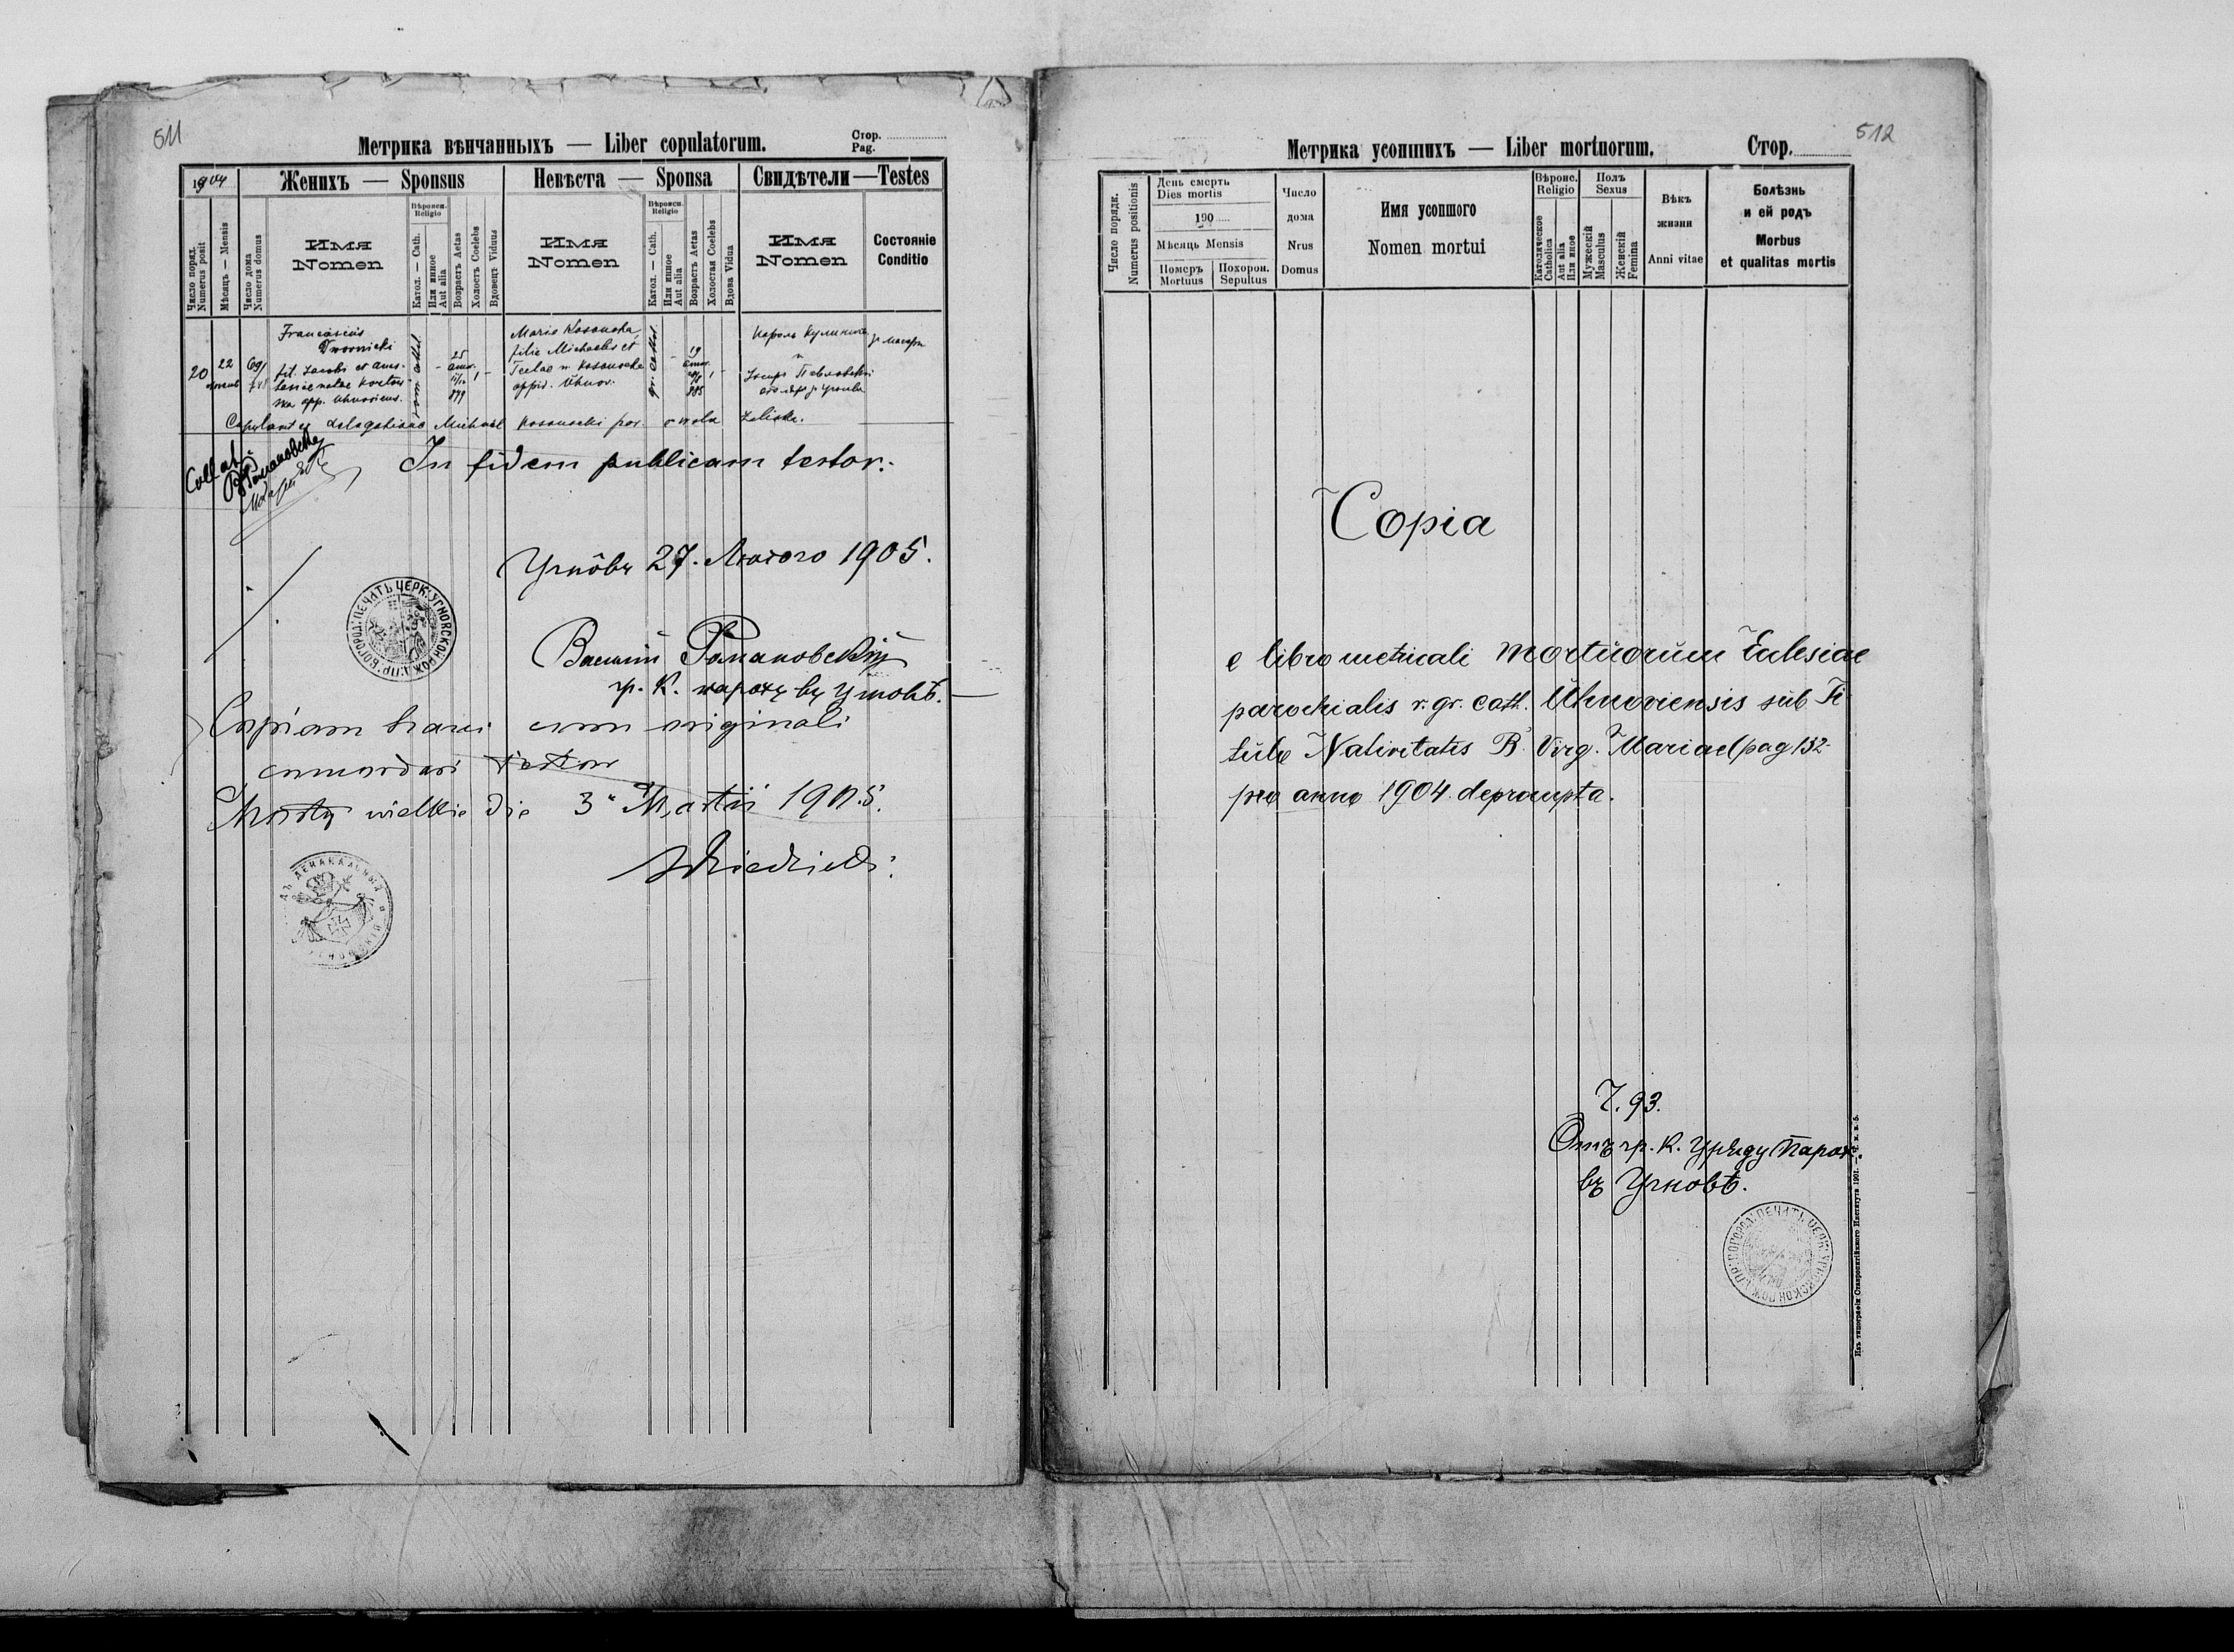 511
Метрика вѣнчанныхъ — Liber copulatorum.
Стор.
Pag.
1904
Женихъ — Sponsus
Невѣста — Sponsa
Свидѣтели — Testes
Число поряд.
Numerus posit
Мѣсяцъ — Mensis
Число дома
Numerus domus
Имя
Nomen
Вѣроисп.
Religio
Катол. — Cath.
Или инное
Aut alia
Возрастъ Aetas
Холостъ Coelebs
Вдовецъ Viduus
Имя
Nomen
Вѣроисп.
Religio
Катол. — Cath.
Или инное
Aut alia
Возрастъ Aetas
Холостая Coelebs
Вдова Vidua
Имя
Nomen
Состояніе
Conditio
20
22
Franciscus
Dwornicki
fil. Jacobi et Anas-
25
1
Maria Kossowska
filia Michaelis et
Teclae n. Kossowska
oppid. Uhnov.
gr. cathol.
19
885
1
Copulavit ex delegatione Michael Kossowski par.
Collat.
Романовскій
In fidem publicam testor.
Угнôвъ 27. Лютого 1905.
ПЕЧАТЬ ЦЕРК. УГНОВСКОИ РОЖД. ПР. БОГОРОД.
Василій Романовскій
гр. к. парохъ въ Угновѣ.
Copiam hanc cum originali
concordari testor
Mosty wielkie die 3 Martii 1905.
512
Метрика усопшихъ — Liber mortuorum.
Стор.
Число порядк.
Numerus positionis
День смерть
Dies mortis
190
Мѣсяць Mensis
Померъ
Mortuus
Похорон.
Sepultus
Число
дома
Nrus
Domus
Имя усопшого
Nomen mortui
Вѣроис.
Religio
Католическое
Catholica
Aut alia
Или инное
Полъ
Sexus
Мужескій
Masculus
Женскій
Femina
Вѣкъ
жизни
Anni vitae
Болѣзнь
и ей родъ
Morbus
et qualitas mortis
Copia
e libro metricali mortuorum Eclesiae
parochialis r. gr. cath. Uhnoviensis sub Ti
tulo Nativitatis B. Virg. Mariae (pag 132-
pro anno 1904. deprompta.
Ч. 93.
Отъ гр. к. Уряду парох.
въ Угновѣ.
ПЕЧАТЬ ЦЕРК. УГНОВСКОИ РОЖД. ПР. БОГОРОД.
Изъ типографіи Ставропигійского Института 1901.